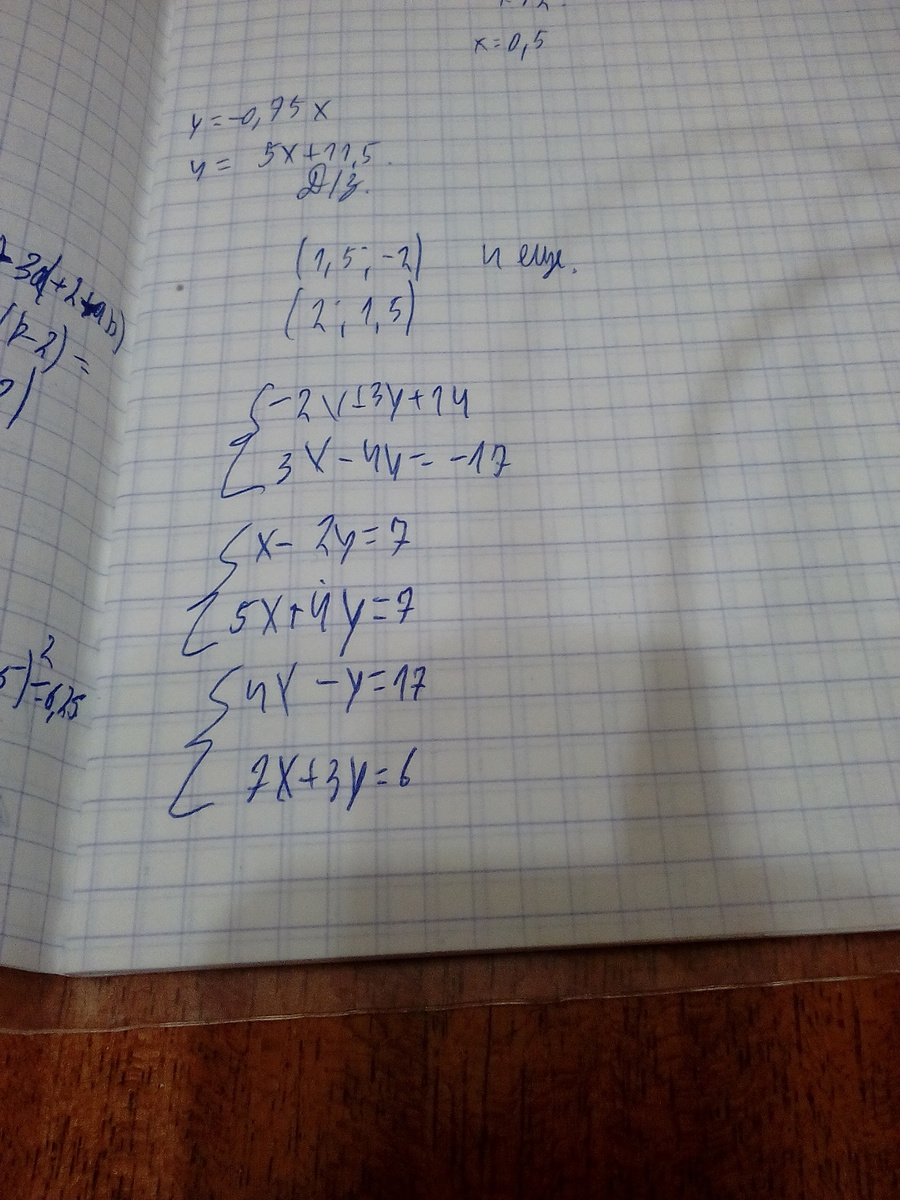 x=0,5
y=-0,75x
y= 5x+11,5.
Д/з.
(1,5; -2) и еще.
(2; 1,5)
3x-4y=-17
x- 2y=7
5x+4y=7
4x -y=17
7x+3y=6
-3a(+2+ab)
(b-2)=
5)²=6,25